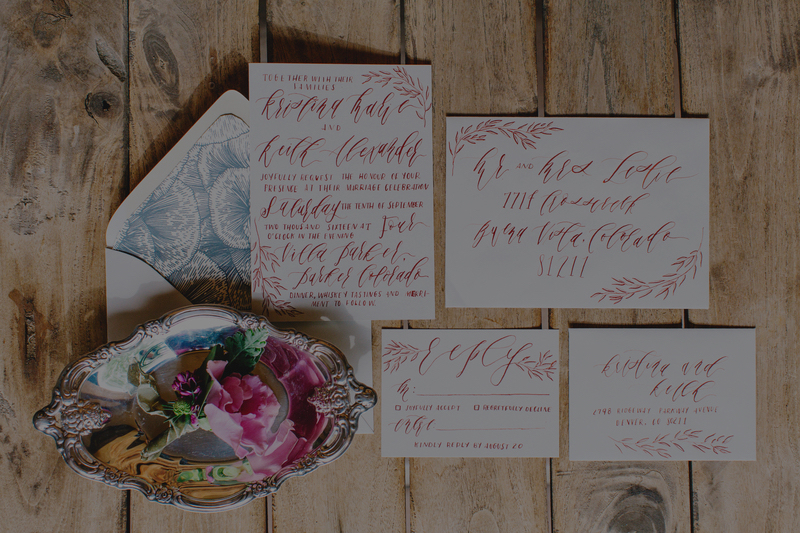 TOGETHER WITH THEIR
FAMILIES
Kristina
AND
Keith Alexander
JOYFULLY REQUEST THE HONOUR OF YOUR
PRESENCE AT THEIR MARRIAGE CELEBRATION
Saturday THE TENTH OF SEPTEMBER
TWO THOUSAND SIXTEEN AT Four
O'CLOCK IN THE EVENING
Villa Parker,
Parker Colorado
DINNER, WHISKEY TASTINGS AND MERRI-
MENT TO FOLLOW.
Mr AND Mrs Leslie
Buena Vista, Colorado
81211
Reply
M:
JOYFULLY ACCEPT REGRETFULLY DECLINE
KINDLY REPLY BY AUGUST 20
Kristina and
Keith
DENVER, CO